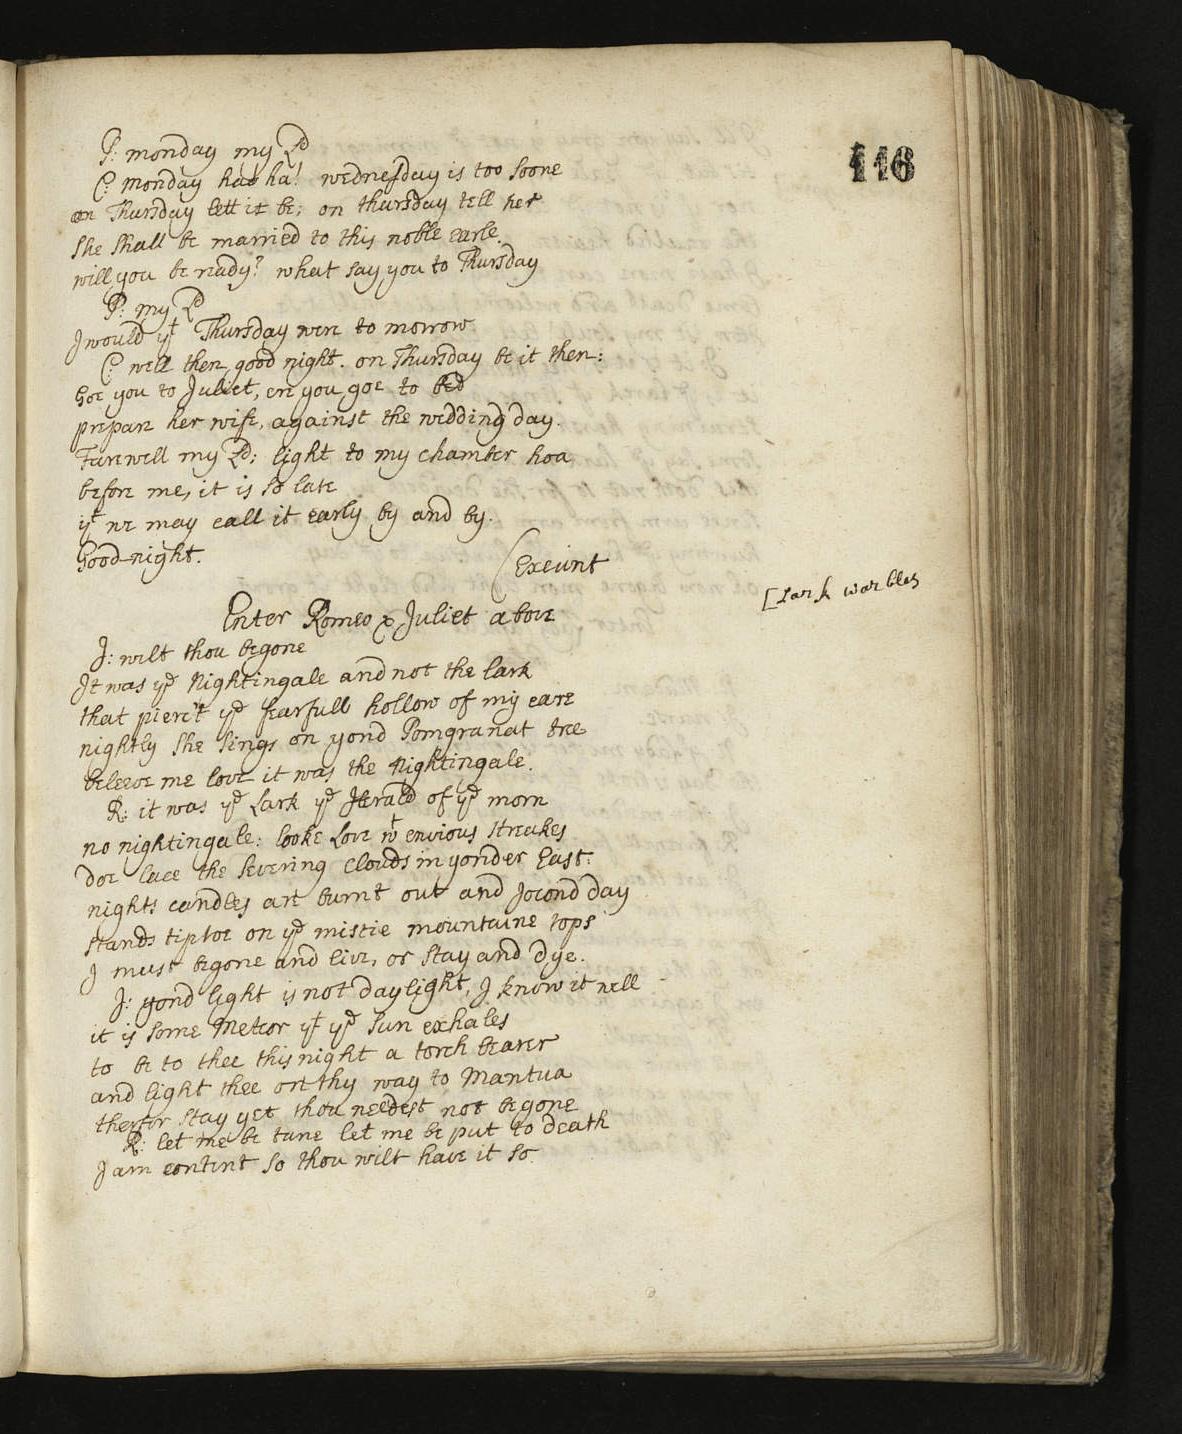 116
P: monday my Ld
C: monday ha ha! wednesday is too soone
on Thursday lett it be; on thursday tell her
she shall be married to this noble earle.
will you be ready? what say you to Thursday
P: my Ld
I would yt Thursday were to morrow
C: well then good night. on Thursday be it then:
Goe you to Juliet, ere you goe to bed
prepare her wife, against the wedding day.
Farewell my Ld: light to my chamber hoa
before me, it is so late
yt we may call it early by and by.
Good-night.
(Exeunt
[Lark warbles
Enter Romeo & Juliet above
J: wilt thou begone
It was ye Nightingale and not the lark
that pierc't ye fearfull hollow of my eare
nightly she sings on yond Pomgranat tree
beleeve me love it was the Nightingale.
R: it was ye Lark ye Herald of ye morn
no nightingale: looke Love wt envious streakes
doe lace the severing clouds in yonder East:
nights candles are burnt out and Jocond day
stands tiptoe on ye mistie mountaine tops
I must begone and live, or stay and dye.
J: yond light is not daylight, I know it well
it is some Meteor yt ye sun exhales
to be to thee this night a torch bearer
and light thee on thy way to Mantua
therfor stay yet thou needest not begone
R: let me be tane let me be put to death
I am content so thou wilt have it so.